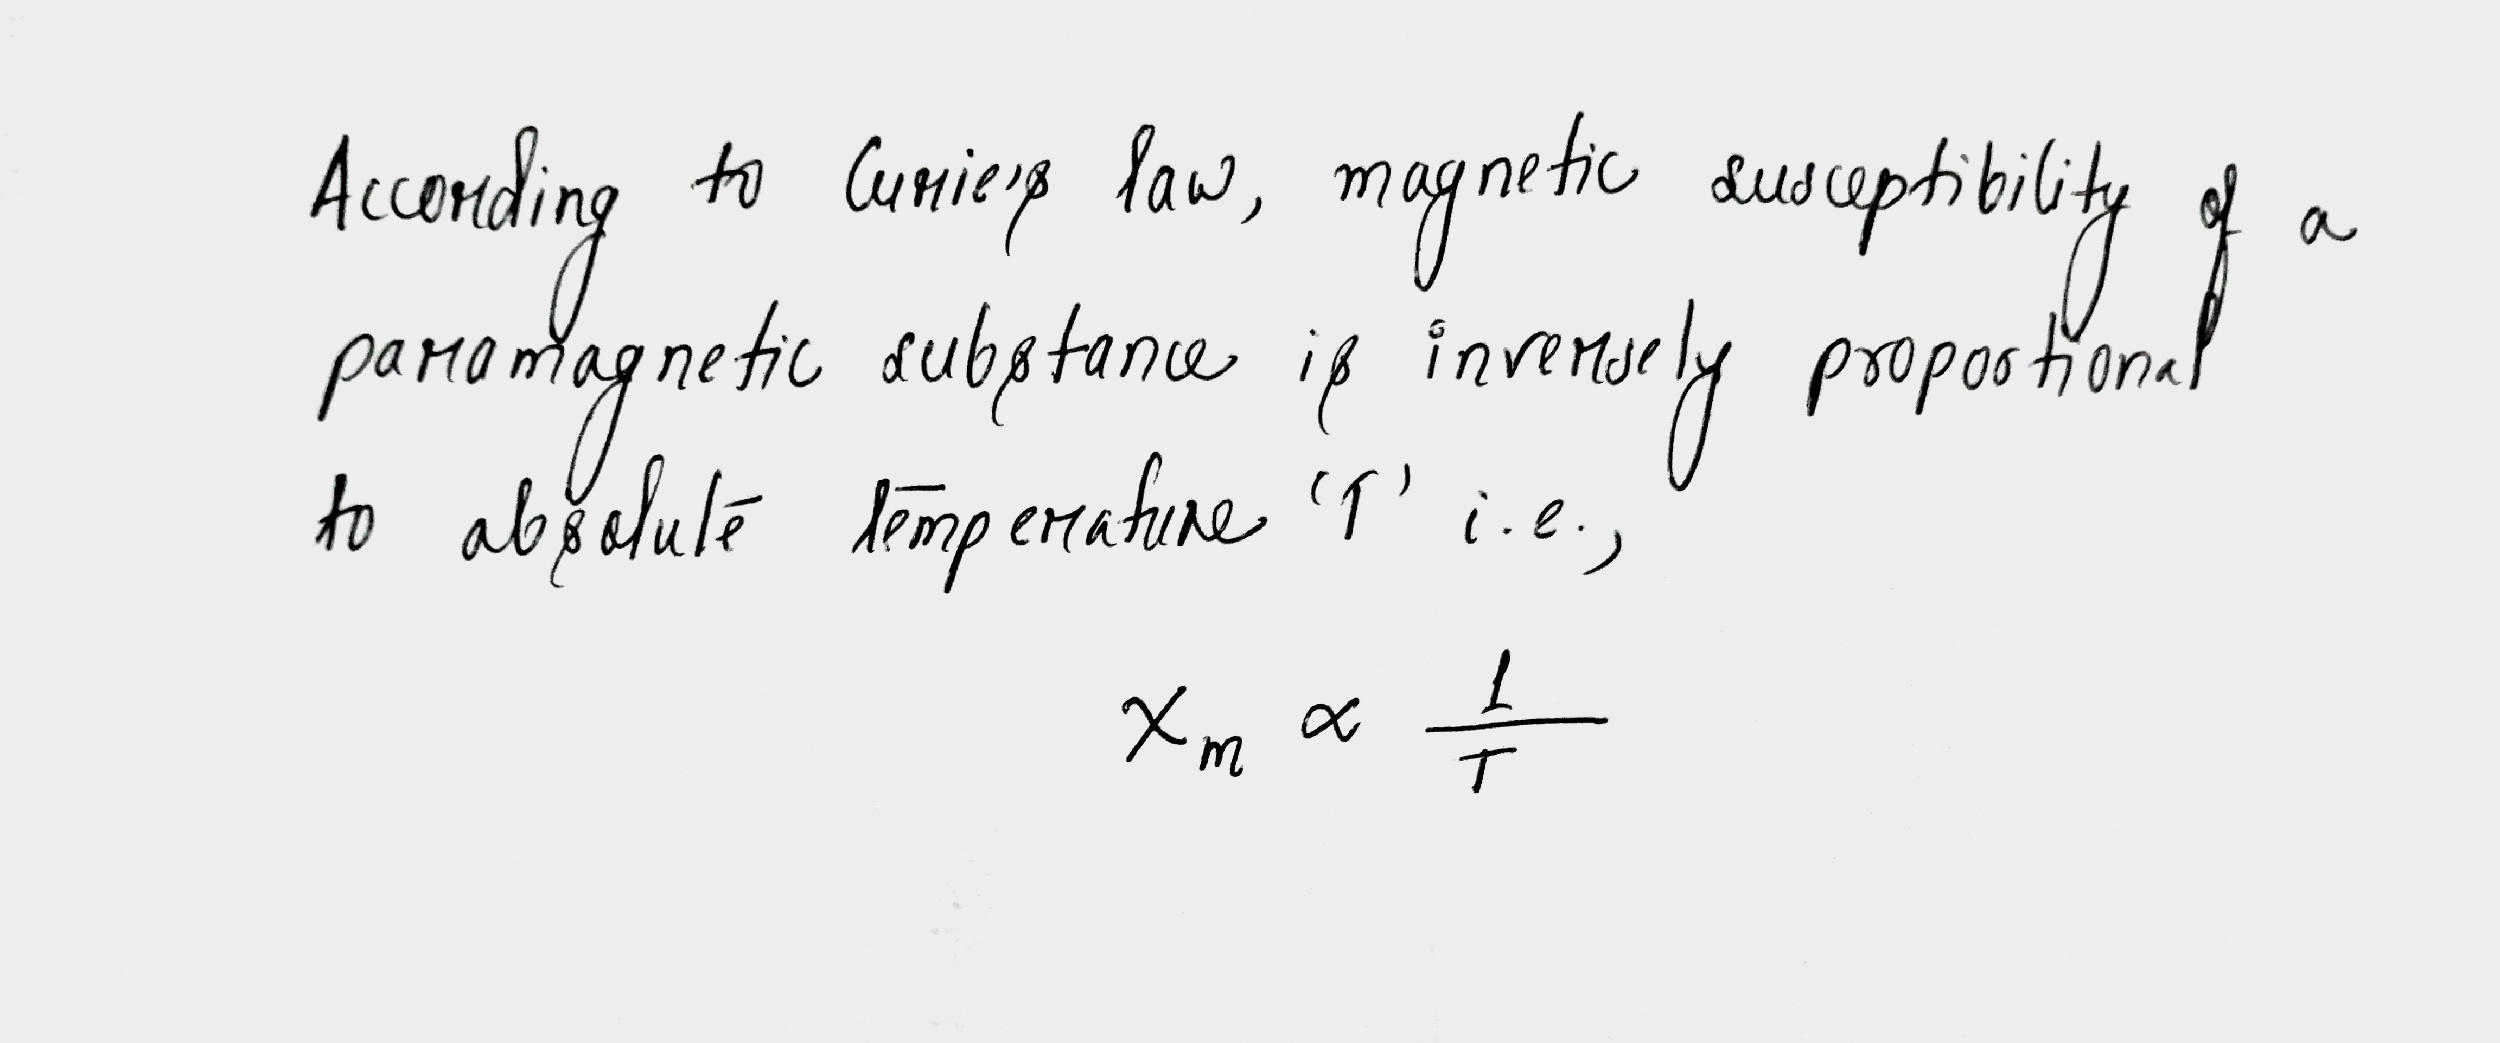 According to Curie's law, magnetic susceptibility of a
paramagnetic substance is inversely proportional
to absolute temperature 'T' i.e.,
χₘ ∝ 1/T